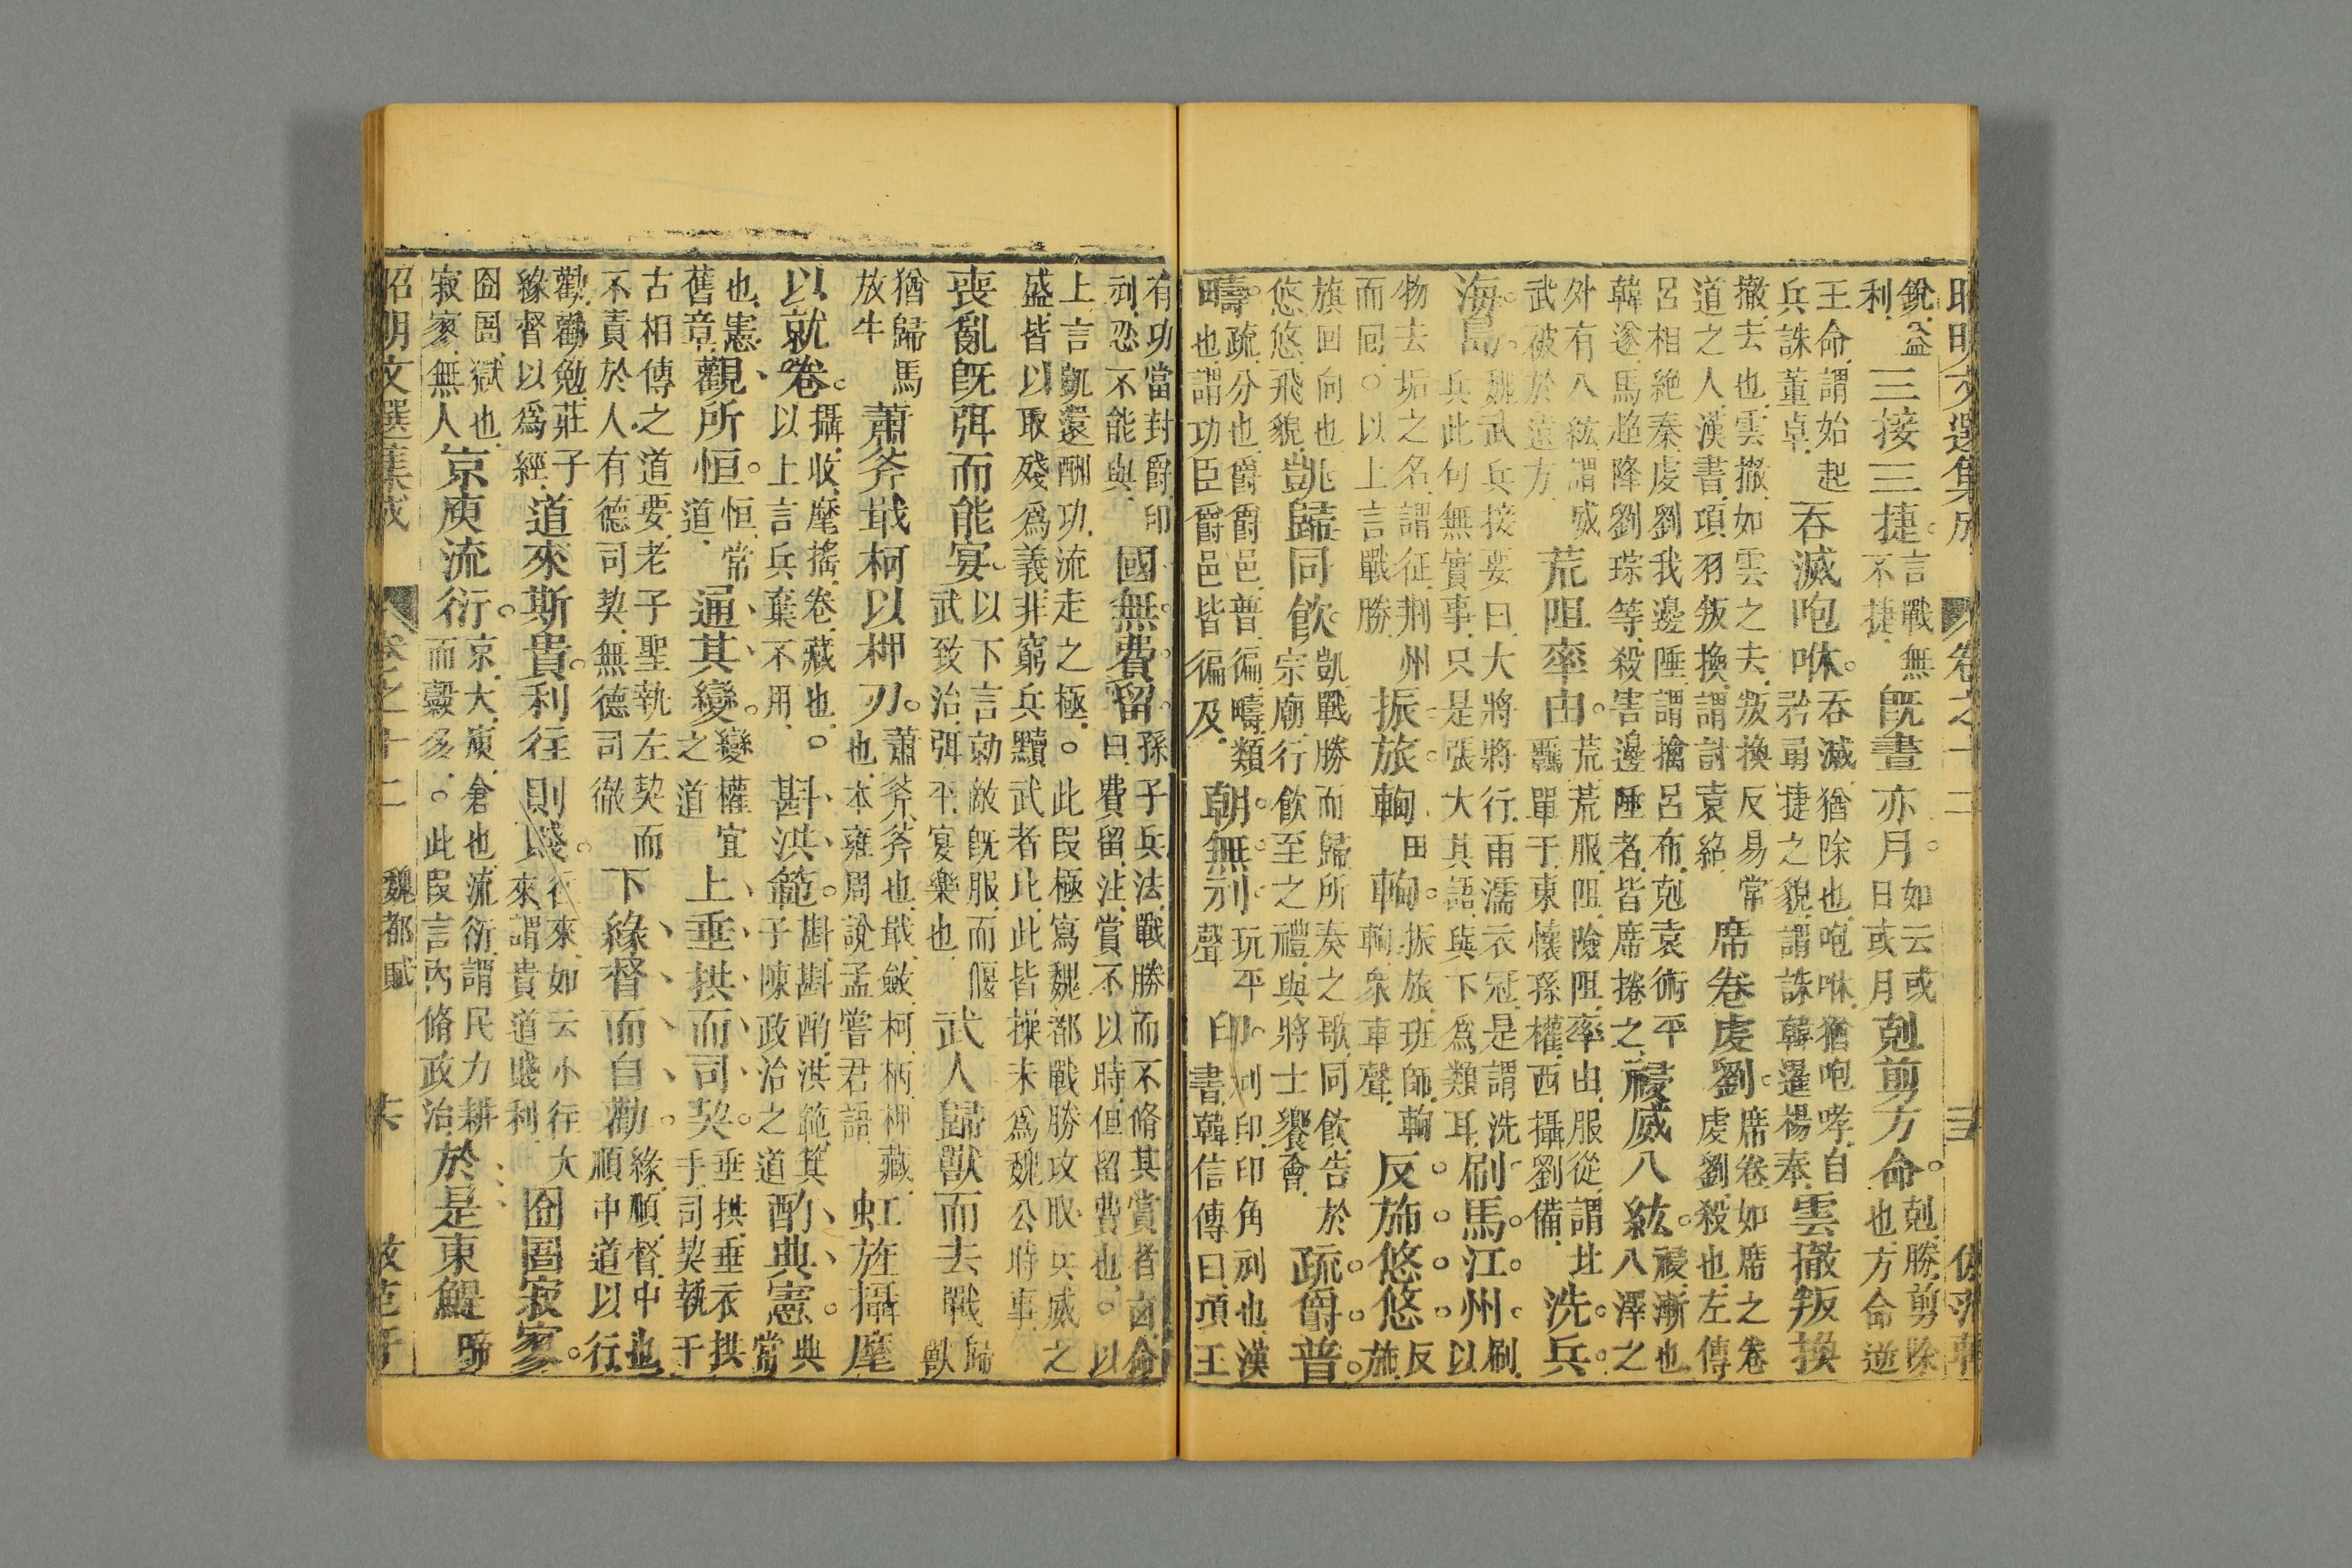 昭明文選集成 卷之十二 三
銳益利三接三捷。言戰無不捷既晝亦月。如云或日或月剋剪方命。剋勝剪除也方命逆
王命謂始起兵誅董卓吞滅咆咻。吞滅猶除也咆咻猶咆哮自矜勇捷之貌謂誅韓暹楊奉雲撤叛換
撤去也雲撤如雲之去叛換反易常道之人漢書項羽叛換謂討袁紹席卷虔劉。席卷如席之卷虔劉殺也左傳
呂相絶秦虔劉我邊陲謂擒呂布剋袁術平韓遂馬超降劉琮等殺害邊陲者皆席捲之祲威八紘。祲漸也八澤之
外有八紘謂威武被於遠方荒阻率由。荒荒服阻險阻率由服從謂北羈單于東懷孫權西攝劉備洗。兵。
海。島。魏武兵接要曰大將將行雨濡衣冠是謂洗兵此句無實事只是張大其語與下爲類耳刷馬。江。州。刷以
物去垢之名謂征荆州而回。以上言戰勝振。旅。輷田輷。振旅班師輷輷衆車聲反。旆。悠。悠。反旆
旗回向也悠悠飛貌凱歸同飲。凱戰勝而歸所奏之歌同飲告於宗廟行飲至之禮與將士饗會疏。爵。普。
疇。疏分也爵爵邑普徧疇類也謂功臣爵邑皆徧及朝。無。刓。玩平聲印。刓印印角刓也漢書韓信傳曰項王
有功當封爵印刓忍不能與國無。費。留。孫子兵法戰勝而不脩其賞者凶命曰費留注賞不以時但留費也。以
上言凱還酬功流走之極。此叚極寫魏都戰勝攻取兵威之盛皆以取殘爲義非窮兵黷武者比此皆操未爲魏公時事
喪亂既弭而能宴。以下言勍敵既服而偃武致治弭平宴樂也武人歸獸而去戰歸獸
猶歸馬放牛蕭斧戢柯以柙刃。蕭斧斧也戢斂柯柄柙藏也本雍周說孟嘗君語虹旌攝麾
以就卷。攝收麾搖卷藏也。以上言兵棄不用斟洪範。斟斟酌洪範箕子陳政治之道酌典憲。典常
也憲舊章觀所恒。恒常道通其變。變權宜之道上垂拱而司契。垂拱垂衣拱手司契執于
古相傳之道要老子聖執左契而不責於人有德司契無德司徹下緣督而自勸。緣順督中也順中道以行
勸勸勉莊子緣督以爲經道來斯貴。利往則賤。往來如云小往大來謂貴道賤利囹圄寂寥。
囹圄獄也寂寥無人京庾流衍。京大庾倉也流衍謂民力耕而穀多。此叚言內脩政治於是東鯷啼
昭明文選集成 卷之十二 魏都賦